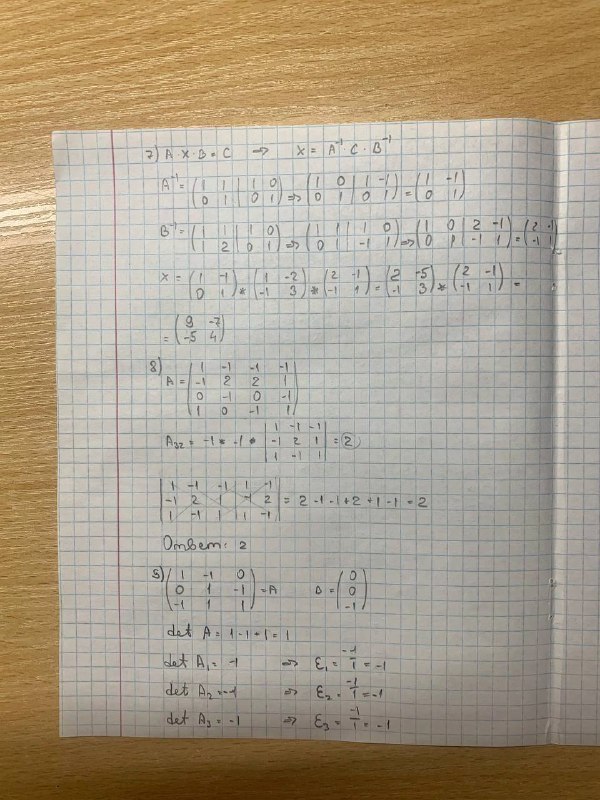 7) A · X · B = C ⟹ X = A⁻¹ · C · B⁻¹
A⁻¹ = (1 1 | 1 0; 0 1 | 0 1) ⟹ (1 0 | 1 -1; 0 1 | 0 1) = (1 -1; 0 1)
B⁻¹ = (1 1 | 1 0; 1 2 | 0 1) ⟹ (1 1 | 1 0; 0 1 | -1 1) ⟹ (1 0 | 2 -1; 0 1 | -1 1) = (2 -1; -1 1)
X = (1 -1; 0 1) * (1 -2; -1 3) * (2 -1; -1 1) = (2 -5; -1 3) * (2 -1; -1 1) =
= (9 -7; -5 4)
8) A = |1 -1 -1 -1; -1 2 2 1; 0 -1 0 -1; 1 0 -1 1|
A₃₂ = -1 * -1 * |1 -1 -1; -1 2 1; 1 -1 1| = 2
|1 -1 -1 | 1 -1; -1 2 1 | -1 2; 1 -1 1 | 1 -1| = 2 -1 -1 +2 +1 -1 = 2
Ответ: 2
5) (1 -1 0; 0 1 -1; -1 1 1) = A B = (0; 0; -1)
det A = 1 - 1 + 1 = 1
det A₁ = -1 ⟹ ε₁ = -1/1 = -1
det A₂ = -1 ⟹ ε₂ = -1/1 = -1
det A₃ = -1 ⟹ ε₃ = -1/1 = -1